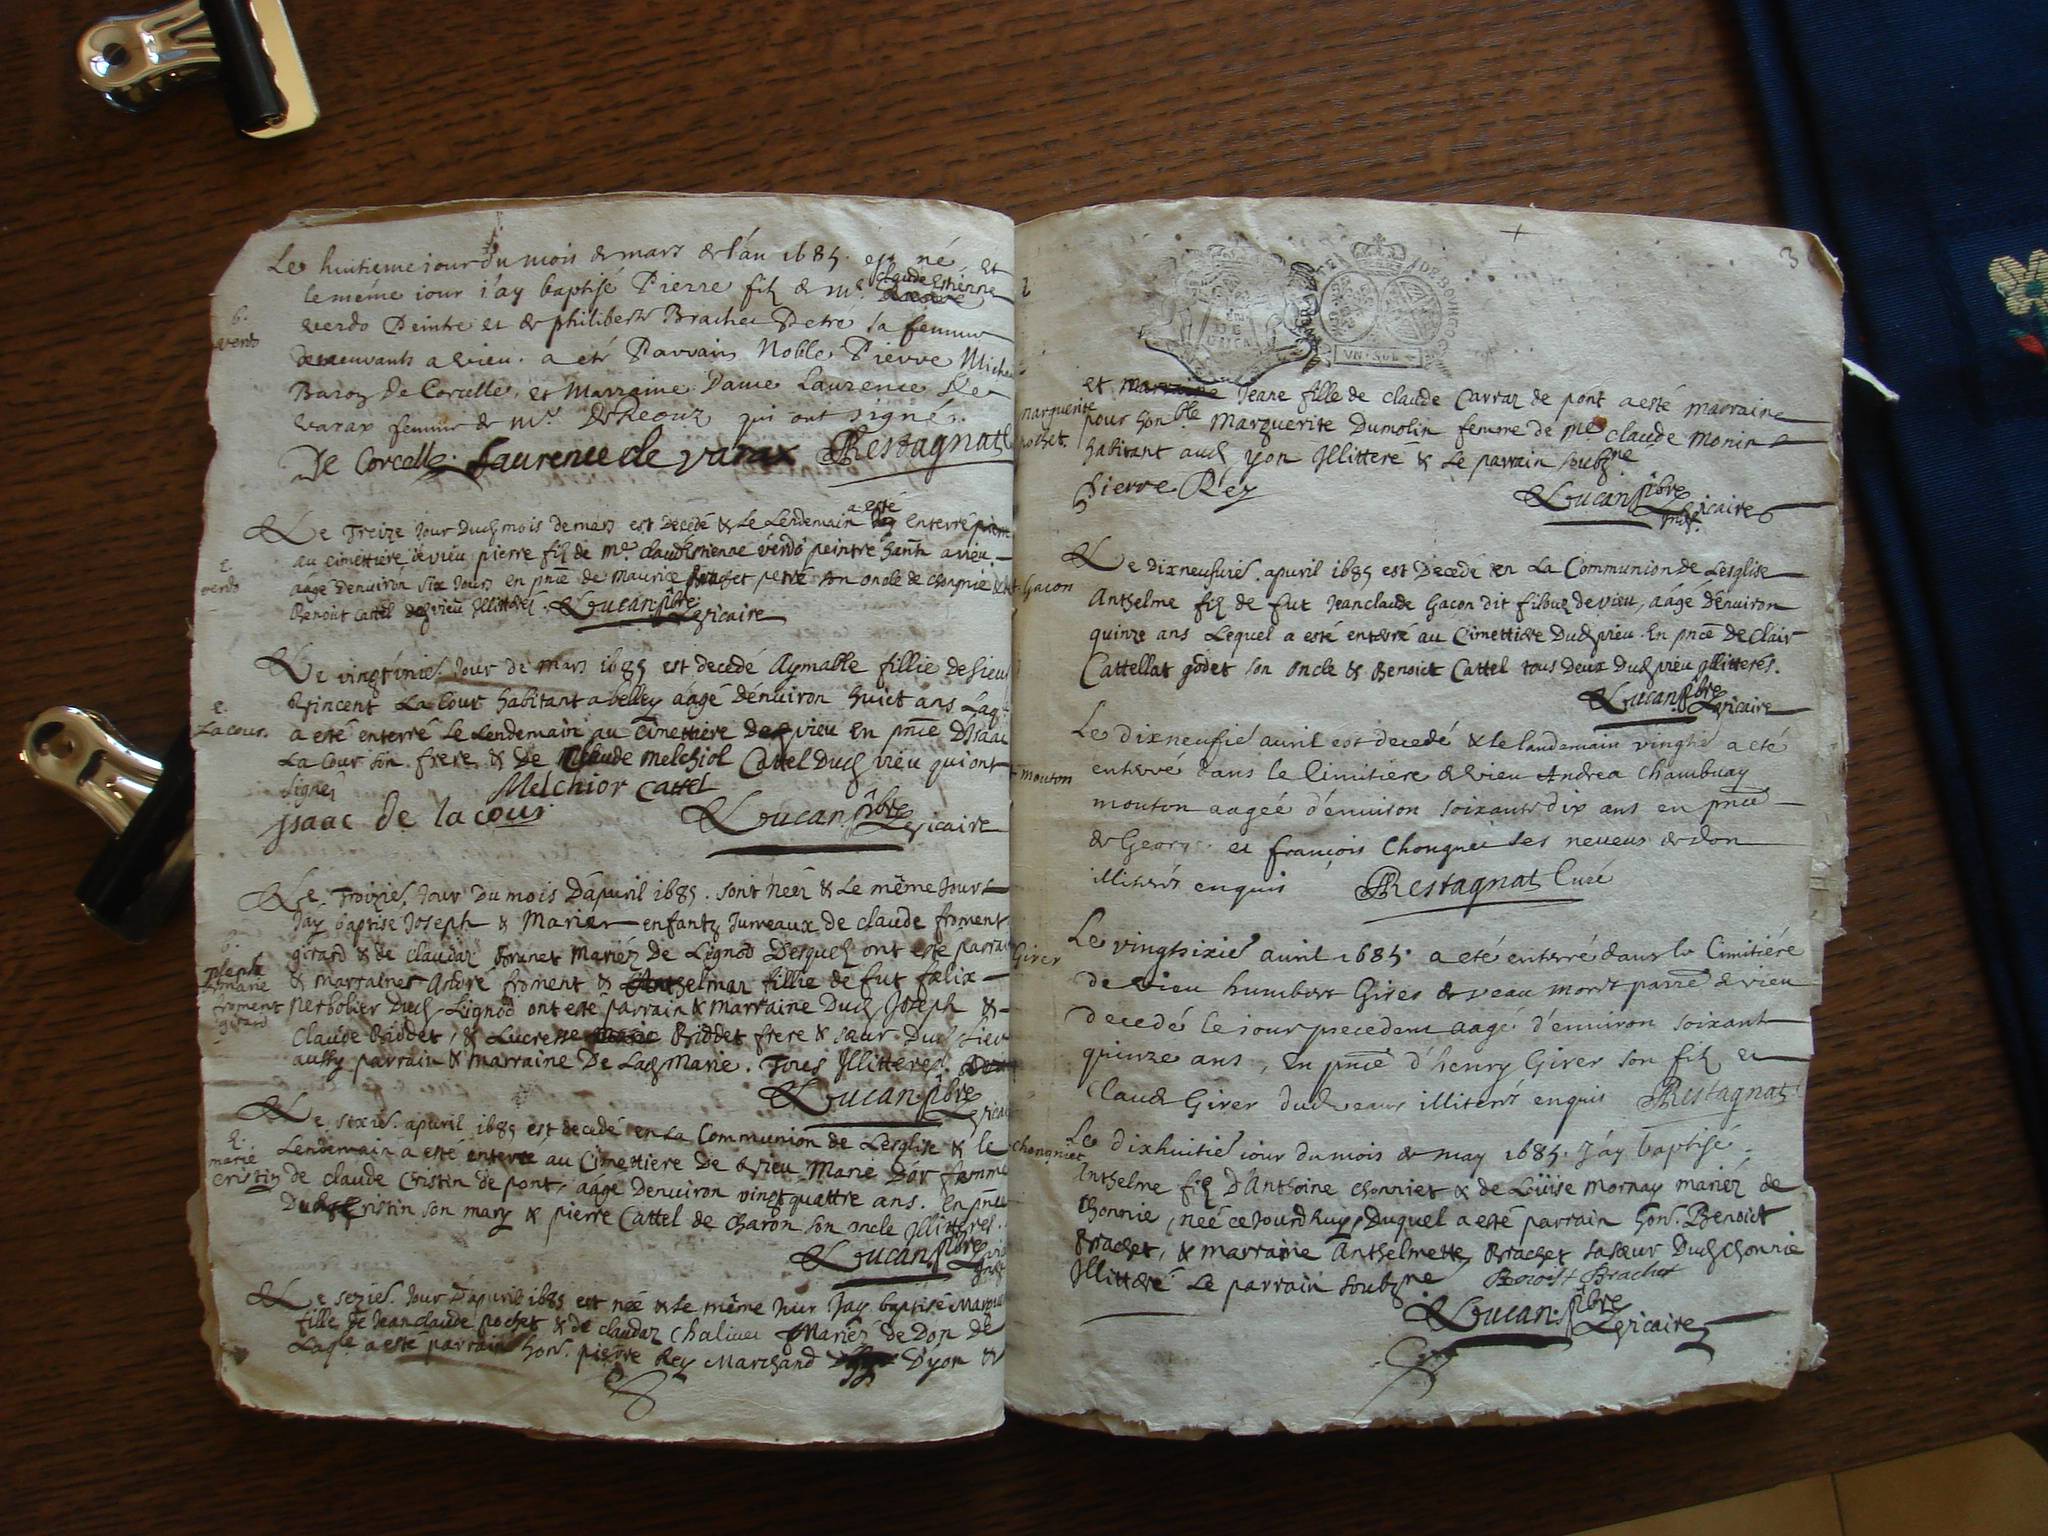 Le huitieme iour du mois de mars de l'an 1685. est né et
le méme iour i'ay baptisé Pierre filz de mr. claude estienne
verdo Peintre et de philiberte Brachet Petre sa femme
demeurants a vieu. a eté Parrain Noble Pierre Michel
Baron De Corcelle, et Marraine Dame Laurence De
varax femme de mr. qui ont signé.
De Corcelle Laurence de varax Restagnat
b.
verdo
Le Treize Jour Dud mois de mars est Decedé & Le Lendemain a esté enterré
au cimettiere de vieu pierre filz de me. claudestienne verdo peintre hantt a vieu
aagé denuiron six Jours en pnce de maurice brachet petre son oncle de chongnie &
Benoict Cattel de vieu Illitterés. Loucan pbre
vicaire
E.
verdo
Le vingtunies. Jour de mars 1685 est decedé Aymable fillie de sieur
vincent La Cour habitant a belley aagé dénuiron huict ans Laq
a esté enterré Le Lendemain au Cimettiere de vieu En pnce D'Isaac
La Cour son frere & De Melchiol Cattel Dud vieu qui ont
signés
Melchior Cattel
Isaac de la cour
Loucan pbre
vicaire
E.
La cour.
Le Troizies. Jour Du mois D'apuril 1685. sont néés & Le même Jour
Jay baptise Joseph & Marie enfantz Jumeaux de claude froment
girard & de claudaz brunet Mariéz De Lignod Desquelz ont esté parrain
& marraine André froment & Anthelmaz fillie de fut felix
perbolier Dud Lignod ont esté parrain & marraine Dud Joseph &
Claude Briddet, & Lucresse Briddet frere & sœur Dud Lieu
aussy parrain & marraine De Lad Marie. Tous Illitterés.
Loucan pbre
vicaire
b.
marie
froment
girard
Le sixies. apuril 1685 est decedé en La Communion de Lesglise & le
Lendemain a esté enterré au Cimettiere De vieu Marie Dor femme
de claude Cristin de pont, aagé Denuiron vingtquattre ans. En pnce
Dud Cristin son mary & pierre Cattel de Charon son oncle Illitterés.
Loucan pbre
E.
marie
Cristin
Le sezies. Jour D'apuril 1685 est née & Le même Jour Jay baptisé
fille de Jeanclaude pochet & de claudaz chaliuet Mariéz de Don De
Laqle a esté parrain hon. pierre Rey Marchand D'yon &
3
UN SOL
et Jeane fille de claude Carraz de pont a esté marraine
pour honble Marguerite Dumolin femme de me claude monin
habitant aud yon Jllitteré & Le parrain soubzne
Pierre Rey
Loucan pbre
vicaire
marguerite
pochet
Le dixneufuies. apuril 1685 est Decedé en La Communion de Lesglise
Anthelme filz de fut Jeanclaude Gacon dit filbuz de vieu, aagé dénuiron
quinze ans Lequel a esté enterré au Cimettiere Dud vieu En pnce De Clair
Cattellat godet son oncle & Benoict Cattel tous deux Dud vieu Illitterés.
Loucan pbre
vicaire
Gacon
Le dixneufie auril est decedé & le landemain vingtie a eté
enterré dans le Cimitiere de vieu Andrea Chambuay
mouton aagée d'enuiron soixante dix ans en pnce
de George et françois Chongnet ses neueus de don
illiterés enquis Restagnat Curé
mouton
Le vingtsixie auril 1685. a eté enterré dans le Cimitiére
de vieu humbert Girer de veau mort parre de vieu
decedé le iour precedent aagé d'enuiron soixant
quinze ans, En pnce d'henry Girer son filz et
Claude Girer dud veau illiterés enquis Restagnat
Girer
Le dixhuitie iour du mois de may 1685. J'ay baptisé
Anthelme filz D'Anthoine Chonniet & de Loüise Mornay mariéz de
Chonnie, neé ce Jourdhuy, Duquel a esté parrain hon. Benoict
Brachet, & marraine Anthelmette Brachet sa sœur Dud Chonnie
Jllitteré. Le parrain soubzne Benoist Brachet
Loucan. pbre
vicaire
chongniet